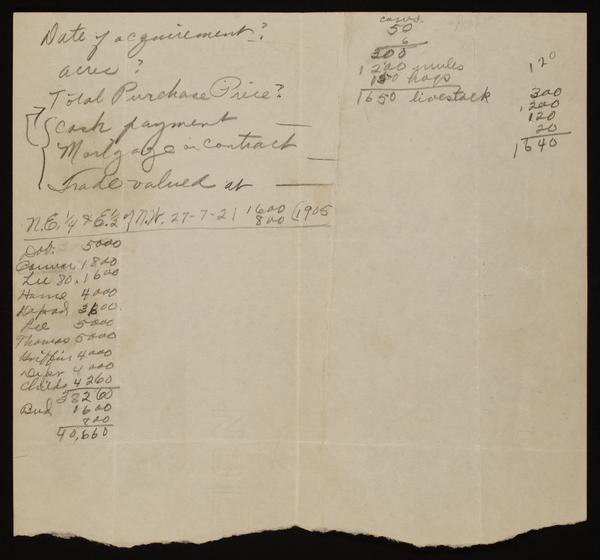 Date of acquirement?
acres?
Total Purchase Price?
Cash payment —
Mortgage or contract —
Trade valued at —
N.E. 1/4 & E. 1/2 of N.W. 27-7-21 1600 (1905
800
Dob. 5000
1800
Lee 80. 1600
Hame 4000
3600.
Lee 5000
Thomas 5000
Griffin 4000
4000
Childs 4260
38260
Bud 1600
800
40,660
cows.
50
6
300
1200 mules
150 hogs
1650 livestock
120
300
1200
120
20
1640